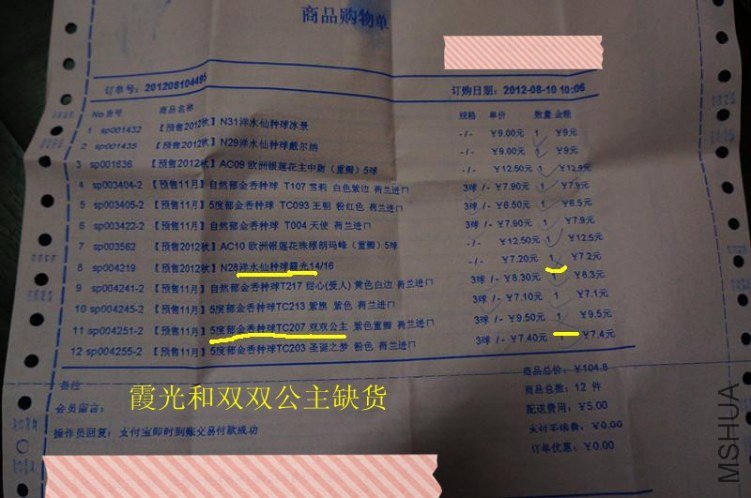 商品购物单
订单号: 201208104485 订购日期: 2012-08-10 10:06
No 货号 商品名称 规格 单价 数量 金额
1 sp001432 【预售2012秋】N31洋水仙种球冰景 -/- ¥9.00元 1 ¥9元
2 sp001435 【预售2012秋】N29洋水仙种球戴尔纳 -/- ¥9.00元 1 ¥9元
3 sp001636 【预售2012秋】AC09 欧洲银莲花主申谢（重瓣）5球 -/- ¥12.50元 1 ¥12.5元
4 sp003404-2 【预售11月】自然郁金香种球 T107 雪莉 白色紫边 荷兰进口 3球 /- ¥7.90元 1 ¥7.9元
5 sp003405-2 【预售11月】5度郁金香种球 TC093 王朝 粉红色 荷兰进口 3球 /- ¥6.50元 1 ¥6.5元
6 sp003422-2 【预售11月】自然郁金香种球 T004 天使 荷兰进口 3球 /- ¥7.90元 1 ¥7.9元
7 sp003562 【预售2012秋】AC10 欧洲银莲花珠穆朗玛峰（重瓣）5球 -/- ¥12.50元 1 ¥12.5元
8 sp004219 【预售2012秋】N28洋水仙种球霞光14/16 -/- ¥7.20元 1 ¥7.2元
9 sp004241-2 【预售11月】自然郁金香种球T217 甜心(爱人) 黄色白边 荷兰进口 3球 /- ¥8.30元 1 ¥8.3元
10 sp004245-2 【预售11月】5度郁金香种球TC213 紫旗 紫色 荷兰进口 3球 /- ¥7.10元 1 ¥7.1元
11 sp004251-2 【预售11月】5度郁金香种球TC207 双双公主 紫色重瓣 荷兰进口 3球 /- ¥9.50元 1 ¥9.5元
12 sp004255-2 【预售11月】5度郁金香种球TC203 圣诞之梦 粉色 荷兰进口 3球 /- ¥7.40元 1 ¥7.4元
商品总价: ¥104.8
备注 商品总数: 12 件
会员留言: 配送费用: ¥5.00
霞光和双双公主缺货
支付手续费: ¥0.00
操作员回复: 支付宝即时到账交易付款成功 订单优惠: ¥0.00
MSHUA